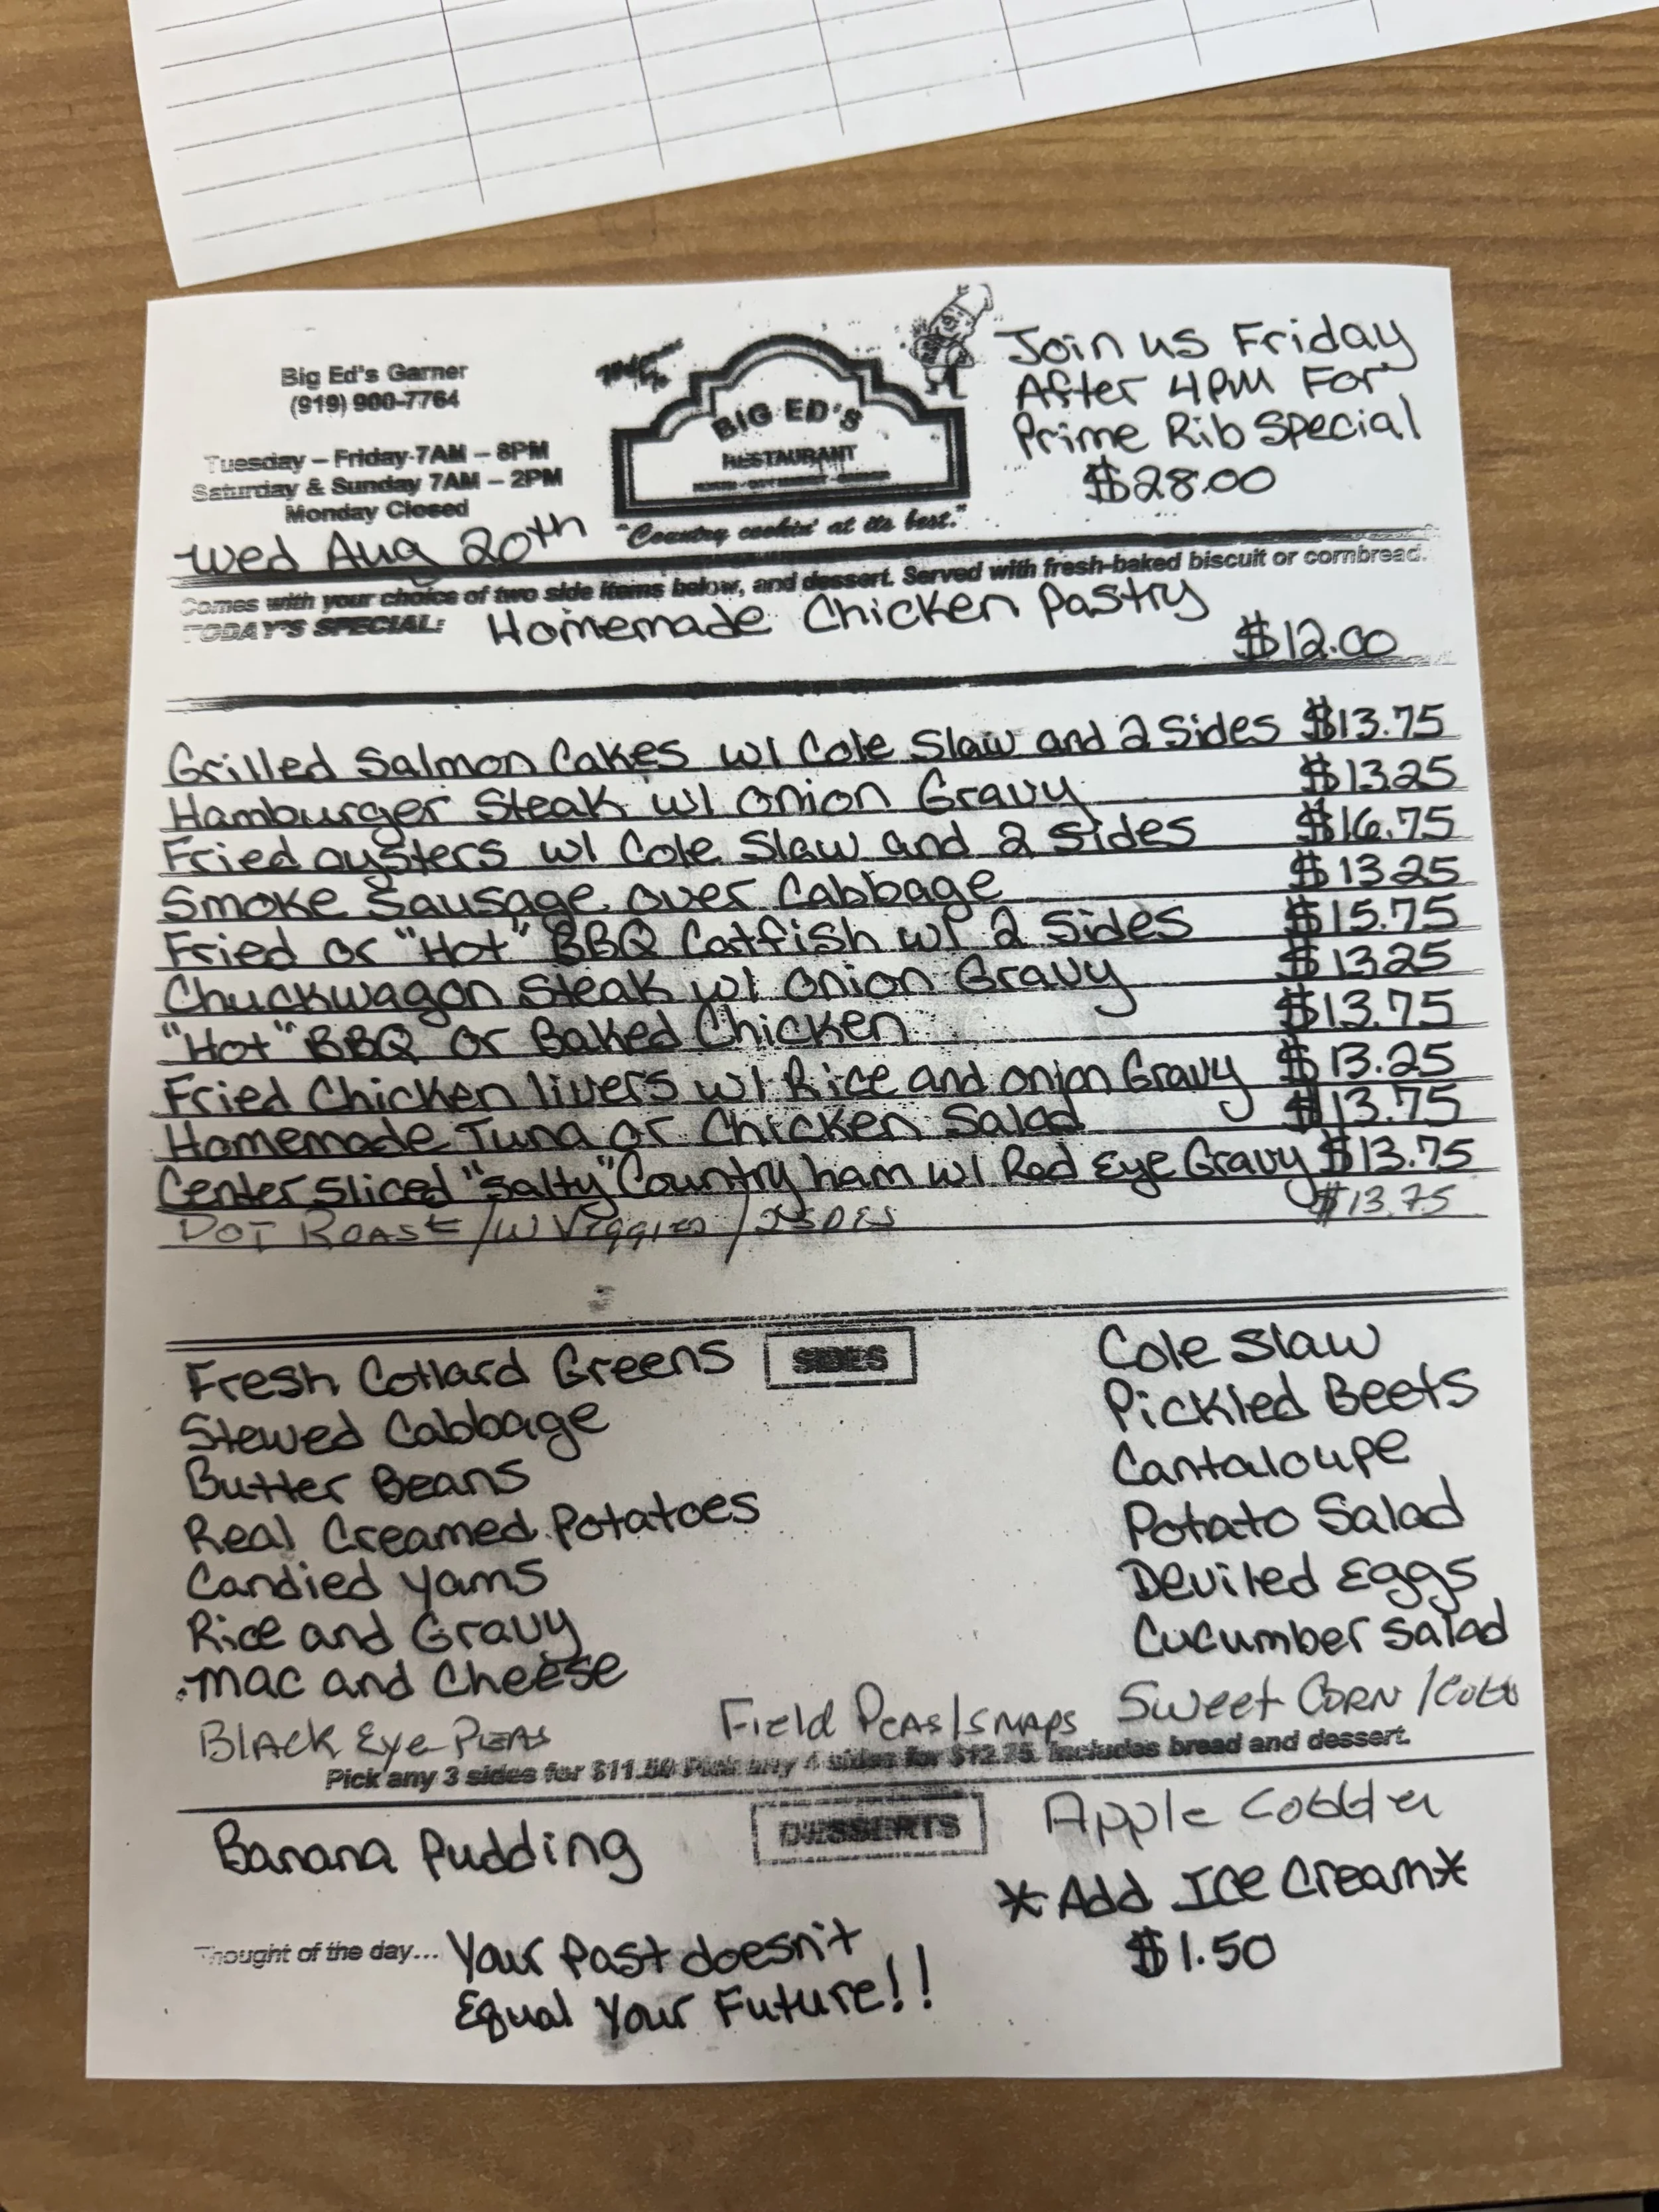 Big Ed's Garner
(919) 900-7764
Tuesday – Friday 7AM – 8PM
Saturday & Sunday 7AM – 2PM
Monday Closed
Wed Aug 20th
BIG ED'S
RESTAURANT
"Country cookin' at its best."
Join us Friday
After 4PM For
Prime Rib Special
$28.00
Comes with your choice of two side items below, and dessert. Served with fresh-baked biscuit or cornbread.
TODAY'S SPECIAL: Homemade Chicken Pastry
$12.00
Grilled Salmon Cakes w/ Cole Slaw and 2 Sides $13.75
Hamburger Steak w/ Onion Gravy $13.25
Fried oysters w/ Cole Slaw and 2 Sides $16.75
Smoke Sausage over Cabbage $13.25
Fried or "Hot" BBQ Catfish w/ 2 Sides $15.75
Chuckwagon Steak w/ Onion Gravy $13.25
"Hot" BBQ or Baked Chicken $13.75
Fried Chicken livers w/ Rice and onion Gravy $13.25
Homemade Tuna or Chicken Salad $13.75
Center sliced "Salty" Country ham w/ Red Eye Gravy $13.75
POT ROAST /W VIGGIES / $13.75
SIDES
Fresh Collard Greens
Stewed Cabbage
Butter Beans
Real Creamed Potatoes
Candied Yams
Rice and Gravy
Mac and Cheese
Black Eye Peas
Field Peas/Snaps
Cole Slaw
Pickled Beets
Cantaloupe
Potato Salad
Deviled Eggs
Cucumber Salad
Sweet Corn /Cobb
Pick any 3 sides for $11.50 Pick any 4 sides for $12.75. Includes bread and dessert.
DESSERTS
Banana Pudding
Apple Cobbler
*Add Ice Cream*
$1.50
Thought of the day... Your Past doesn't
Equal Your Future!!